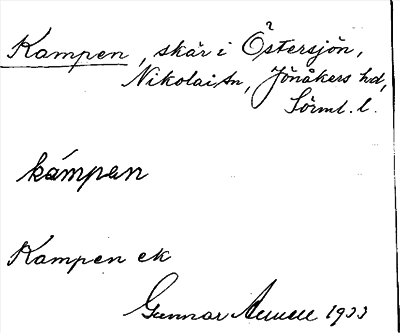 Kampen, skär i Östersjön,
Nikolai sn, Jönåkers hd,
Sörml. l.
kámpan
Kampen ek
Gunnar 1933